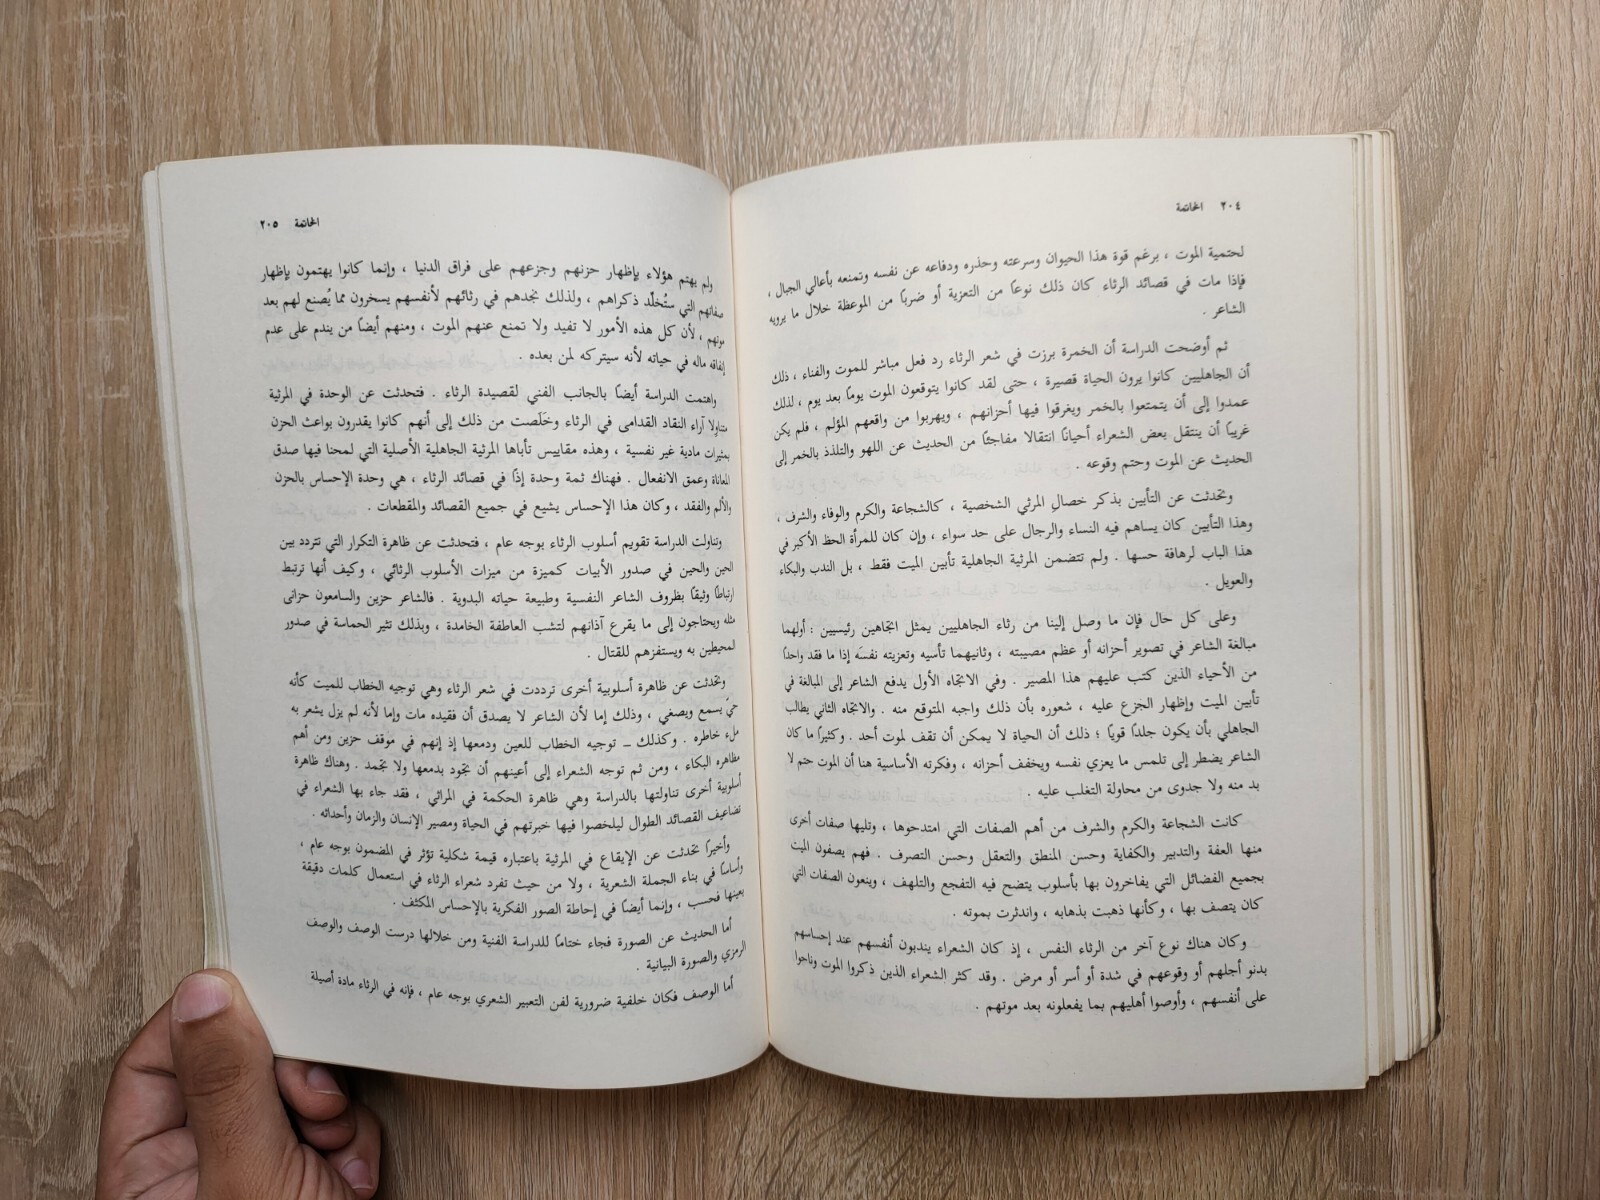 ٢٠٤ الخاتمة
لحتمية الموت ، برغم قوة هذا الحيوان وسرعته وحذره ودفاعه عن نفسه وتمنعه بأعالي الجبال ،
فإذا مات في قصائد الرثاء كان ذلك نوعًا من التعزية أو ضربًا من الموعظة خلال ما يرويه
الشاعر .
ثم أوضحت الدراسة أن الخمرة برزت في شعر الرثاء رد فعل مباشر للموت والفناء ، ذلك
أن الجاهليين كانوا يرون الحياة قصيرة ، حتى لقد كانوا يتوقعون الموت يومًا بعد يوم ، لذلك
عمدوا إلى أن يتمتعوا بالخمر ويغرقوا فيها أحزانهم ، ويهربوا من واقعهم المؤلم ، فلم يكن
غريبًا أن ينتقل بعض الشعراء أحيانًا انتقالا مفاجئًا من الحديث عن اللهو والتلذذ بالخمر إلى
الحديث عن الموت وحتم وقوعه .
وتحدثت عن التأبين بذكر خصال المرثي الشخصية ، كالشجاعة والكرم والوفاء والشرف ،
وهذا التأبين كان يساهم فيه النساء والرجال على حد سواء ، وإن كان للمرأة الحظ الأكبر في
هذا الباب لرهافة حسها . ولم تتضمن المرثية الجاهلية تأبين الميت فقط ، بل الندب والبكاء
والعويل .
وعلى كل حال فإن ما وصل إلينا من رثاء الجاهليين يمثل اتجاهين رئيسيين : أولهما
مبالغة الشاعر في تصوير أحزانه أو عظم مصيبته ، وثانيهما تأسيه وتعزيته نفسَه إذا ما فقد واحدًا
من الأحياء الذين كتب عليهم هذا المصير . وفي الاتجاه الأول يدفع الشاعر إلى المبالغة في
تأبين الميت وإظهار الجزع عليه ، شعوره بأن ذلك واجبه المتوقع منه . والاتجاه الثاني يطالب
الجاهلي بأن يكون جلدًا قويًا ؛ ذلك أن الحياة لا يمكن أن تقف لموت أحد . وكثيرًا ما كان
الشاعر يضطر إلى تلمس ما يعزي نفسه ويخفف أحزانه ، وفكرته الأساسية هنا أن الموت حتم لا
بد منه ولا جدوى من محاولة التغلب عليه .
كانت الشجاعة والكرم والشرف من أهم الصفات التي امتدحوها ، وتليها صفات أخرى
منها العفة والتدبير والكفاية وحسن المنطق والتعقل وحسن التصرف . فهم يصفون الميت
بجميع الفضائل التي يفاخرون بها بأسلوب يتضح فيه التفجع والتلهف ، وينعون الصفات التي
كان يتصف بها ، وكأنها ذهبت بذهابه ، واندثرت بموته .
وكان هناك نوع آخر من الرثاء النفس ، إذ كان الشعراء يندبون أنفسهم عند إحساسهم
بدنو أجلهم أو وقوعهم في شدة أو أسر أو مرض . وقد كثر الشعراء الذين ذكروا الموت وناحوا
على أنفسهم ، وأوصوا أهليهم بما يفعلونه بعد موتهم .
الخاتمة ٢٠٥
ولم يهتم هؤلاء بإظهار حزنهم وجزعهم على فراق الدنيا ، وإنما كانوا يهتمون بإظهار
صفاتهم التي ستُخلّد ذكراهم ، ولذلك نجدهم في رثائهم لأنفسهم يسخرون مما يُصنع لهم بعد
موتهم ، لأن كل هذه الأمور لا تفيد ولا تمنع عنهم الموت ، ومنهم أيضًا من يندم على عدم
إنفاقه ماله في حياته لأنه سيتركه لمن بعده .
واهتمت الدراسة أيضًا بالجانب الفني لقصيدة الرثاء . فتحدثت عن الوحدة في المرثية
متناولا آراء النقاد القدامى في الرثاء وخَلَصت من ذلك إلى أنهم كانوا يقدرون بواعث الحزن
بمثيرات مادية غير نفسية ، وهذه مقاييس تأباها المرثية الجاهلية الأصلية التي لمحنا فيها صدق
المعاناة وعمق الانفعال . فهناك ثمة وحدة إذًا في قصائد الرثاء ، هي وحدة الإحساس بالحزن
والألم والفقد ، وكان هذا الإحساس يشيع في جميع القصائد والمقطعات .
وتناولت الدراسة تقويم أسلوب الرثاء بوجه عام ، فتحدثت عن ظاهرة التكرار التي تتردد بين
الحين والحين في صدور الأبيات كميزة من ميزات الأسلوب الرثائي ، وكيف أنها ترتبط
ارتباطًا وثيقًا بظروف الشاعر النفسية وطبيعة حياته البدوية . فالشاعر حزين والسامعون حزانى
مثله ويحتاجون إلى ما يقرع آذانهم لتشب العاطفة الخامدة ، وبذلك تثير الحماسة في صدور
المحيطين به ويستفزهم للقتال .
وتحدثت عن ظاهرة أسلوبية أخرى ترددت في شعر الرثاء وهي توجيه الخطاب للميت كأنه
حيّ يسمع ويصغي ، وذلك إما لأن الشاعر لا يصدق أن فقيده مات وإما لأنه لم يزل يشعر به
ملء خاطره . وكذلك ــ توجيه الخطاب للعين ودمعها إذ إنهم في موقف حزين ومن أهم
مظاهره البكاء ، ومن ثم توجه الشعراء إلى أعينهم أن تجود بدمعها ولا تجمد . وهناك ظاهرة
أسلوبية أخرى تناولتها بالدراسة وهي ظاهرة الحكمة في المراثي ، فقد جاء بها الشعراء في
تضاعيف القصائد الطوال ليلخصوا فيها خبرتهم في الحياة ومصير الإنسان والزمان وأحداثه .
وأخيرًا تحدثت عن الإيقاع في المرثية باعتباره قيمة شكلية تؤثر في المضمون بوجه عام ،
وأساسًا في بناء الجملة الشعرية ، ولا من حيث تفرد شعراء الرثاء في استعمال كلمات دقيقة
بعينها فحسب ، وإنما أيضًا في إحاطة الصور الفكرية بالإحساس المكثف .
أما الحديث عن الصورة فجاء ختامًا للدراسة الفنية ومن خلالها درست الوصف والوصف
الرمزي والصورة البيانية .
أما الوصف فكان خلفية ضرورية لفن التعبير الشعري بوجه عام ، فإنه في الرثاء مادة أصيلة